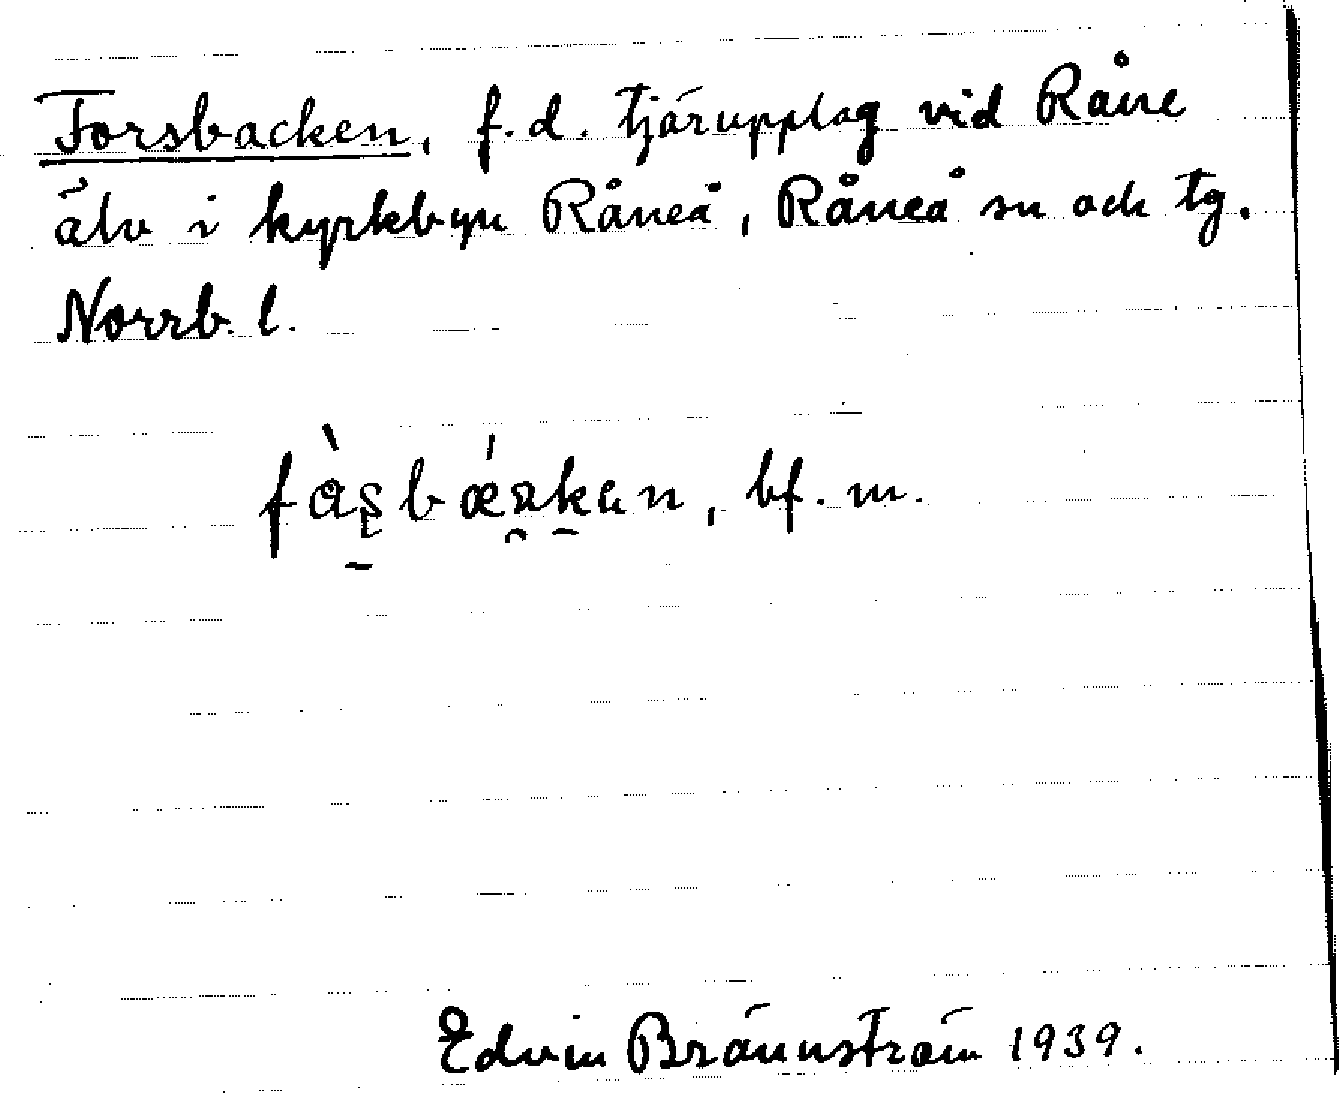 Forsbacken, f.d. tjärupplag vid Råne
älv i kyrkbyn Råneå, Råneå sn och tg.
Norrb. l.
bf. m.
Edvin Brännström 1939.